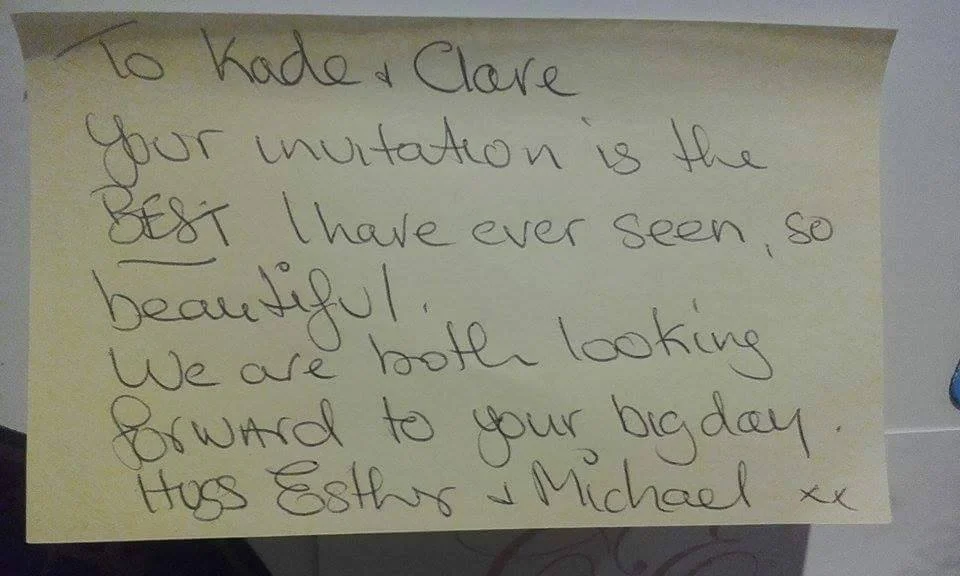 To Kade & Clare
Your invitation is the
BEST I have ever seen, so
beautiful.
We are both looking
forward to your big day.
Hugs Esther & Michael xx